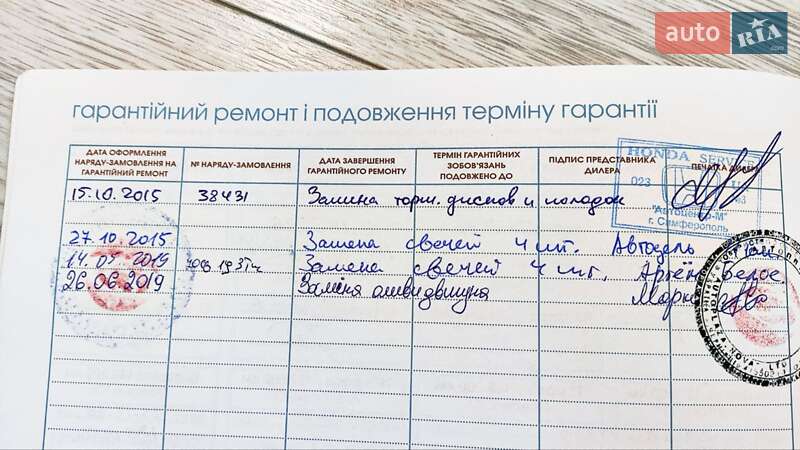 auto RIA .com
гарантійний ремонт і подовження терміну гарантії
ДАТА ОФОРМЛЕННЯ НАРЯДУ-ЗАМОВЛЕННЯ НА ГАРАНТІЙНИЙ РЕМОНТ
№ НАРЯДУ-ЗАМОВЛЕННЯ
ДАТА ЗАВЕРШЕННЯ ГАРАНТІЙНОГО РЕМОНТУ
ТЕРМІН ГАРАНТІЙНИХ ЗОБОВ'ЯЗАНЬ ПОДОВЖЕНО ДО
ПІДПИС ПРЕДСТАВНИКА ДИЛЕРА
ПЕЧАТКА ДИЛЕРА
HONDA SERVICE
023
"Автоцентр-М"
г. Симферополь
15.10.2015 38431 Замина торм. дисков и колодок
27.10.2015 Замена свечей 4 шт. Автодель
14.04.2019 Замена свечей 4 шт.
26.06.2019 Заміна
NOVA LTD